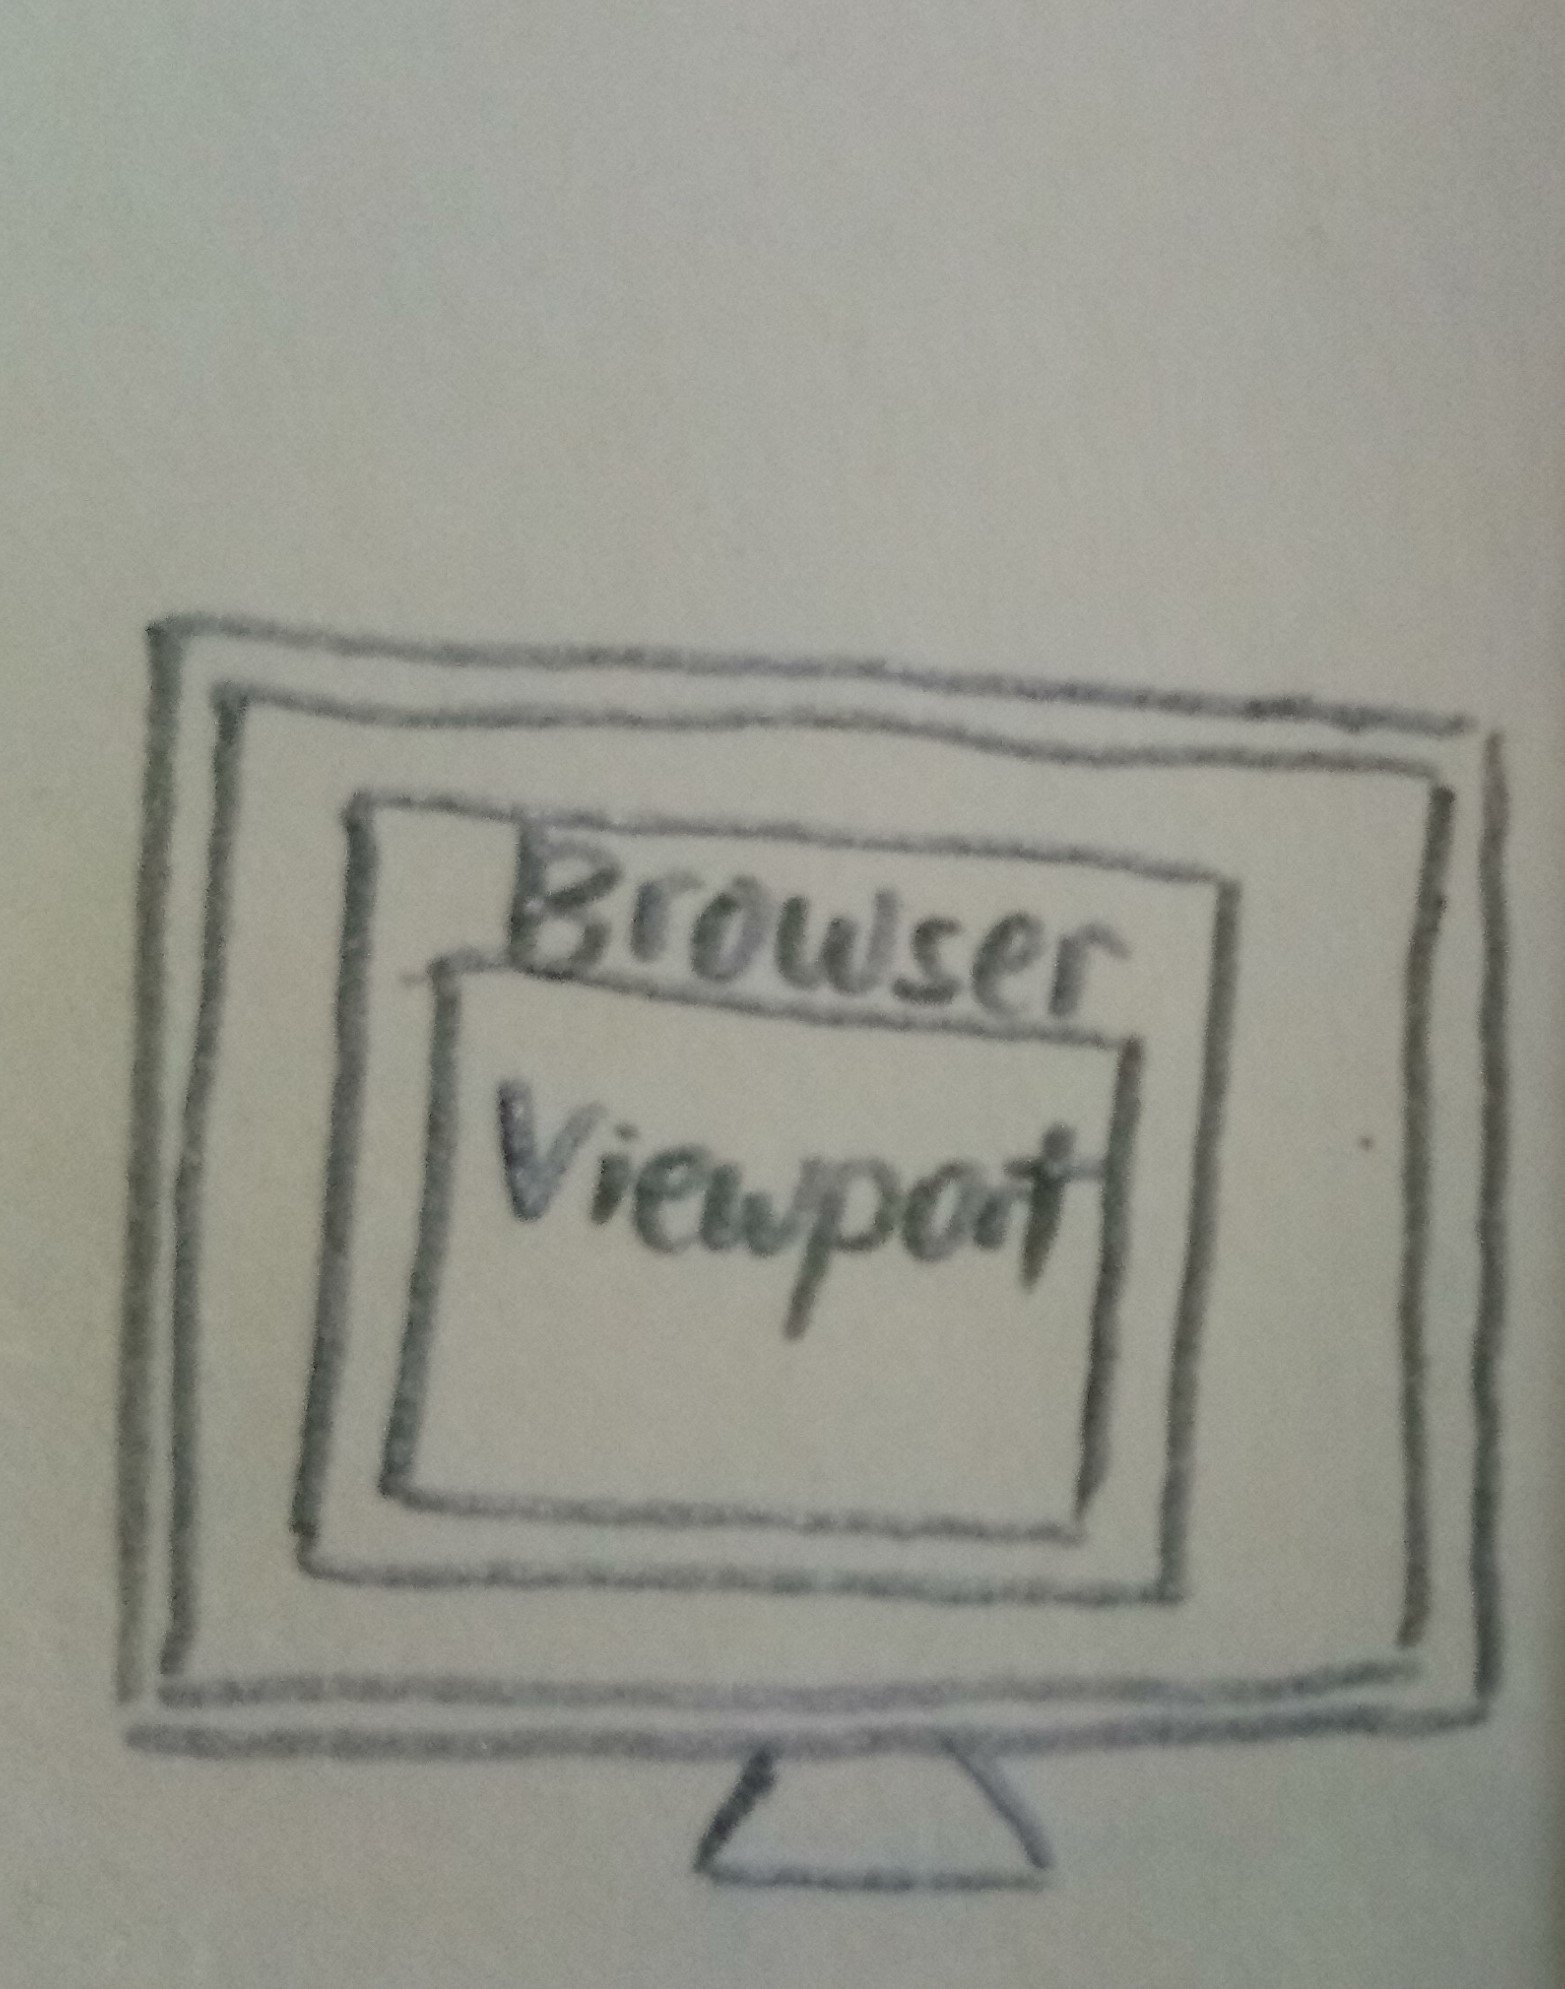 Browser
Viewport